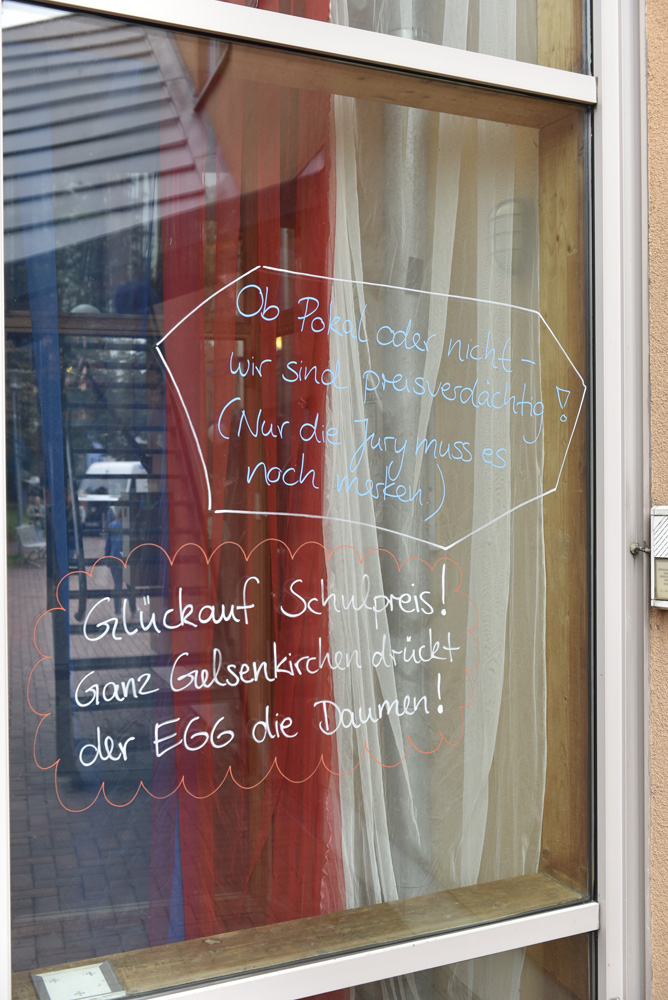 Ob Pokal oder nicht -
wir sind preisverdächtig!
(Nur die Jury muss es
noch merken.)
Glückauf Schulpreis!
Ganz Gelsenkirchen drückt
der EGG die Daumen!